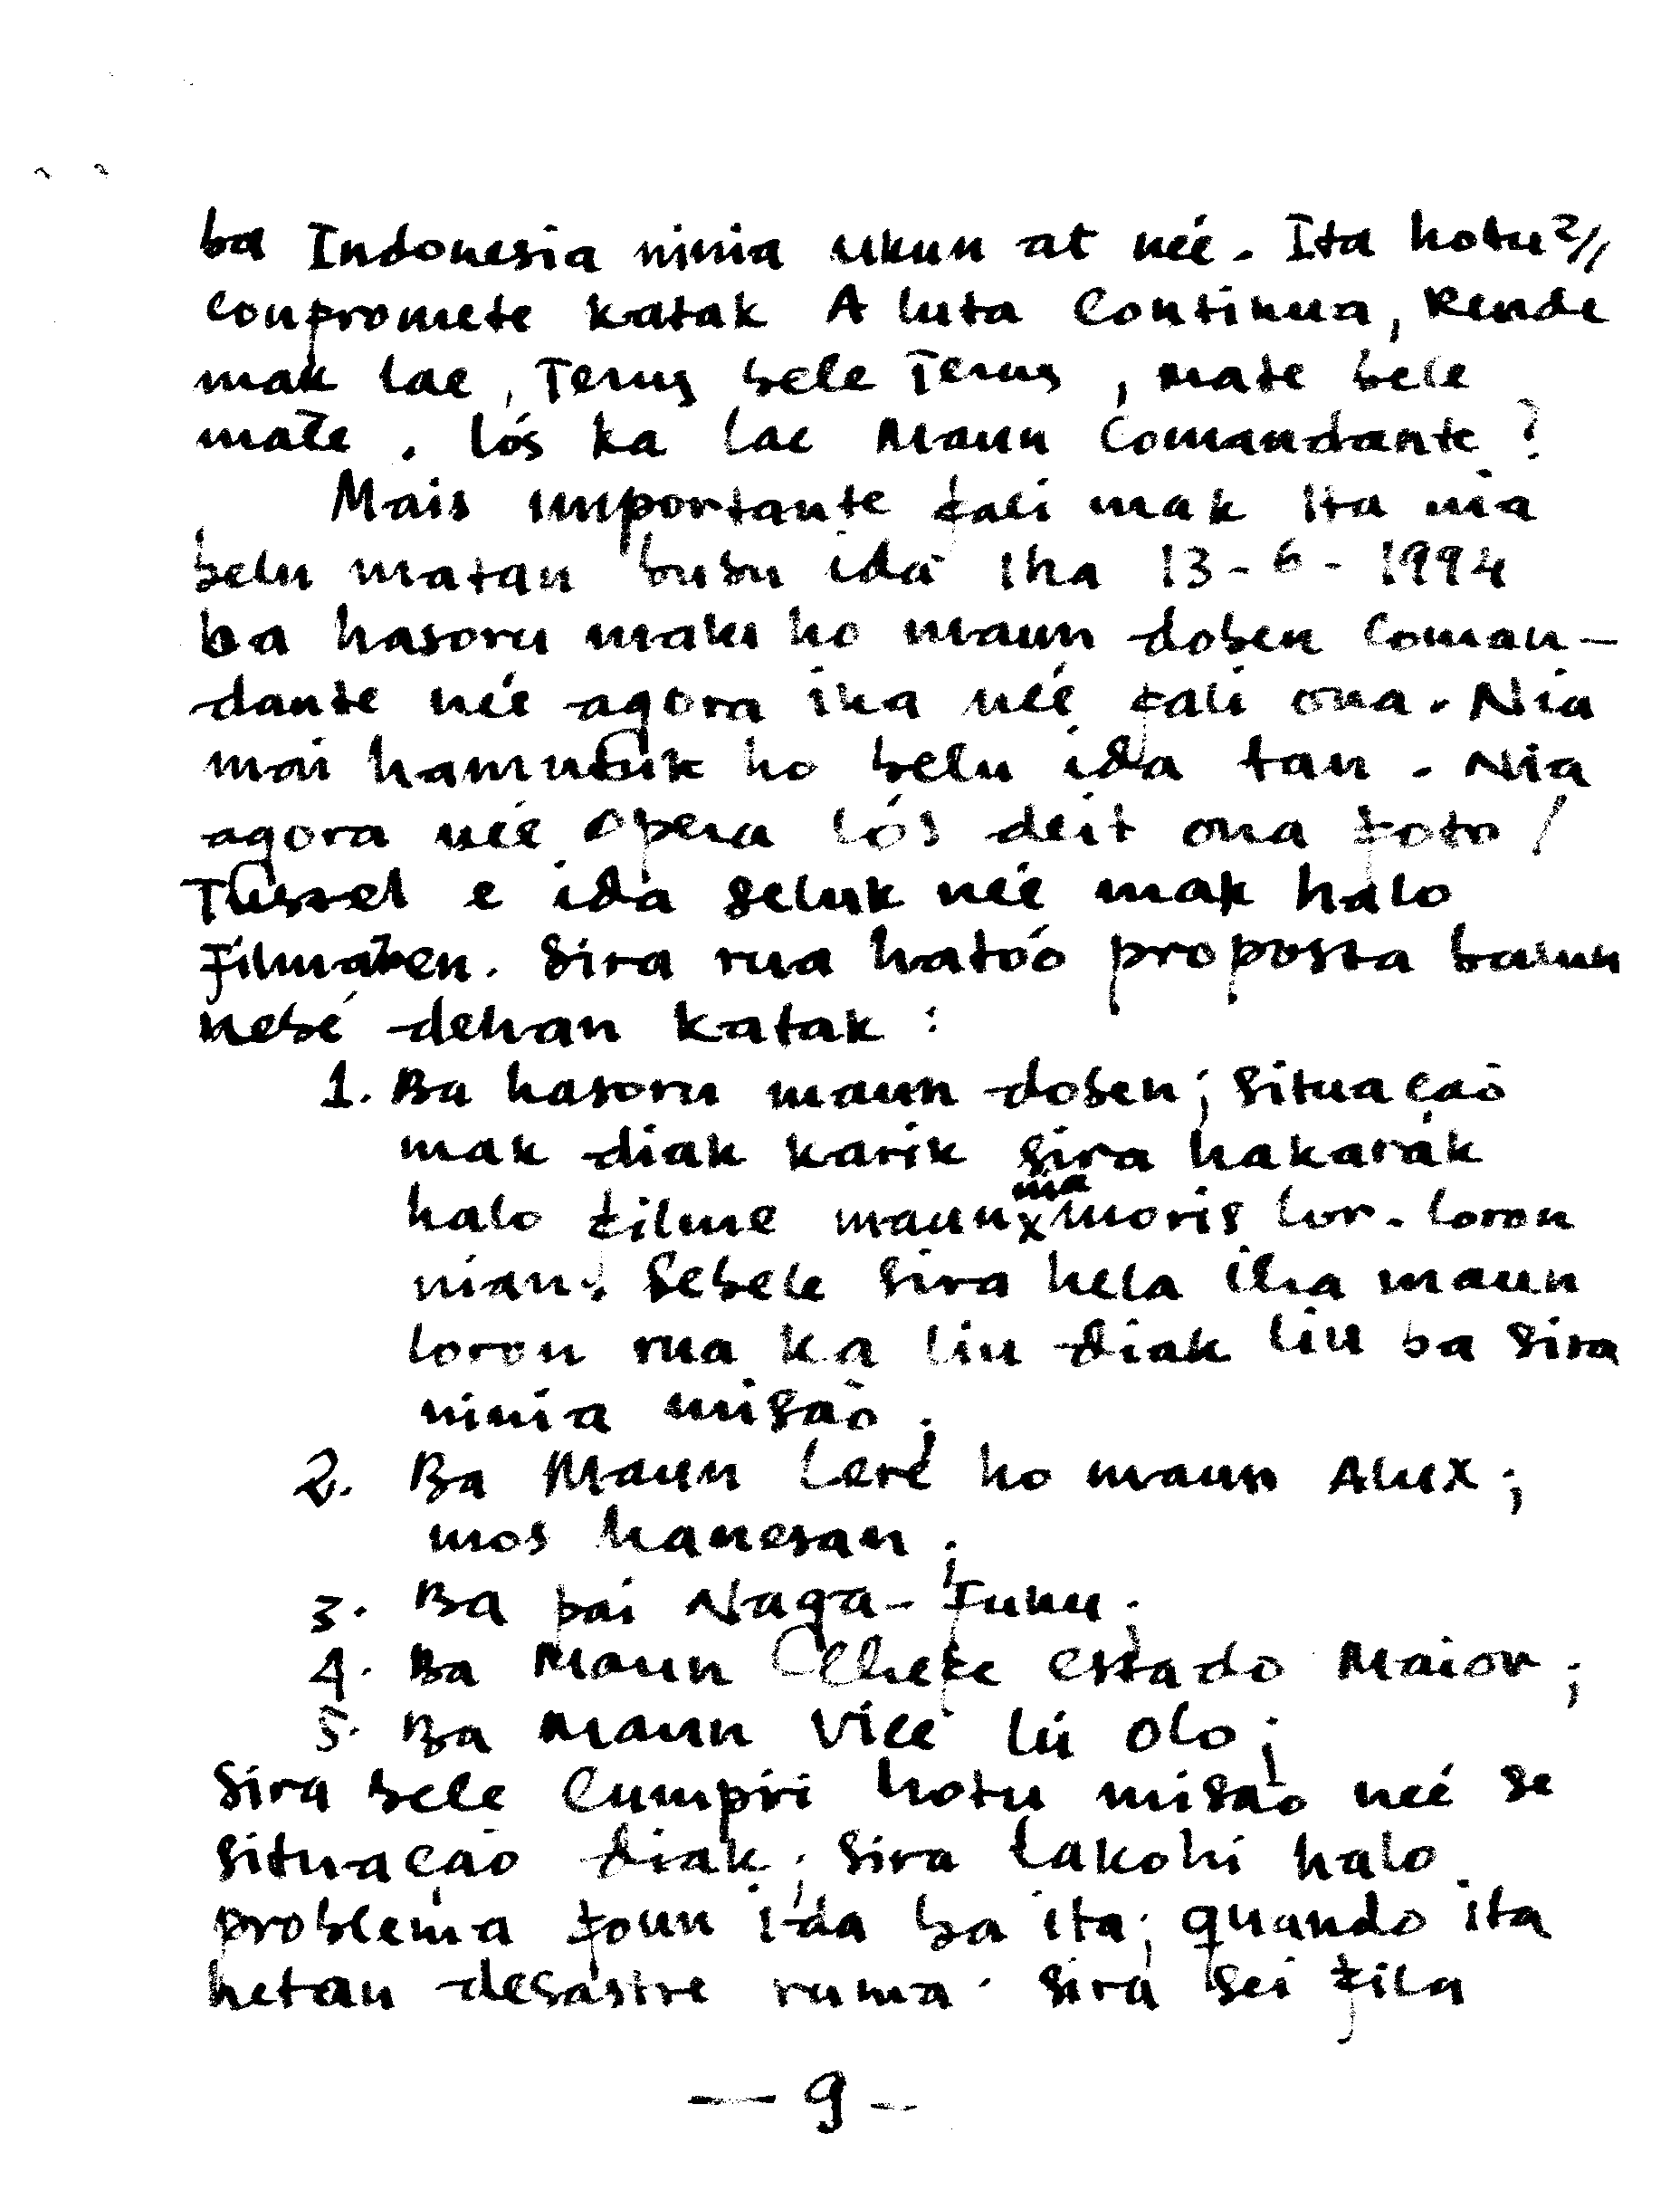 ba Indonesia ninia ukun at neé. Ita hotu²//
conpromete katak A luta Continua, Rende
mak lae, Terus bele Terus, mate bele
mate. lós ka lae Maun Comandante?
Mais importante fali mak Ita nia
belu matan busu ida iha 13-6-1994
ba hasoru malu ho maun doben Coman-
dante neé agora iha neé fali ona. Nia
mai hamutuk ho belu ida tan. Nia
agora neé opera lós deit ona foto/
e ida seluk neé mak halo
Sira rua hatóo proposta balun
nebé dehan katak:
1. Ba hasoru maun doben; situação
mak diak karik sira hakarak
halo filme maun x nia moris lor-loron
nian. Sebele sira hela iha maun
loron rua ka liu diak liu ba sira
ninia misaõ.
2. Ba Maun Leré ho maun Alux;
mos hanesan.
3. Ba pai Naga-Funu.
4. Ba Maun Chefe estado Maior;
5. Ba Maun Vice Lú Olo;
Sira bele Cumpri hotu misaõ neé se
situação diak; sira lakohi halo
problema foun ida ba ita; quando ita
hetan desastre ruma. sira sei fila
— 9 –